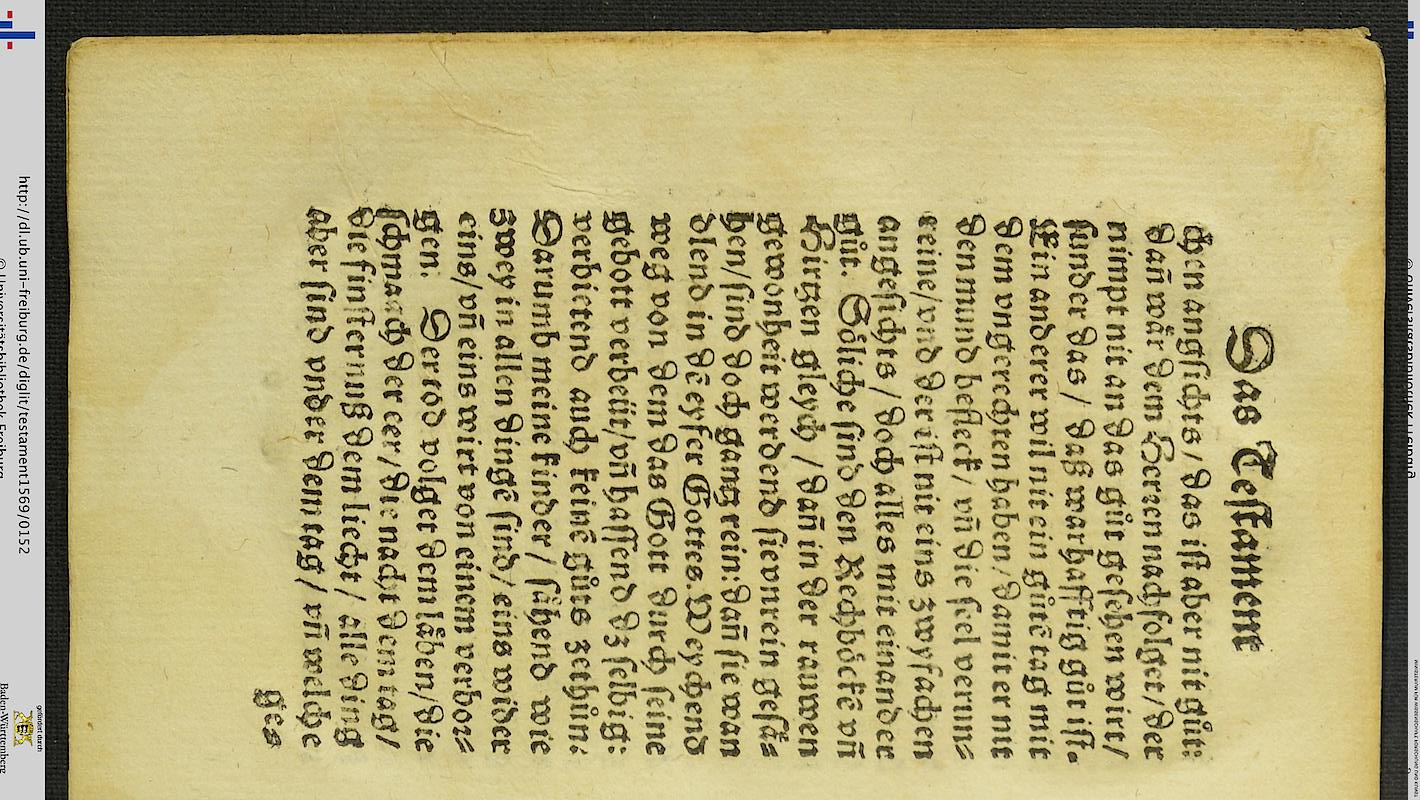 Das Testament
chen angsichts / das ist aber nit gůt:
dañ wär dem Herren nachfolget / der
nimpt nit an das gůt gesehen wirt /
sunder das / daß warhafftig gůt ist.
Ein anderer wil nit ein gůtē tag mit
dem vngerechten haben / damit er nit
den mund befleck / vñ die seel verun-
reine / vnd der ist nit eins zwyfachen
angesichts / doch alles mit einander
gůt. Söliche sind den Rechböckē vñ
Hirtzen gleych / dañ in der rauwen
gewonheit werdend sie vnrein gesä-
hen / sind doch gantz rein: dañ sie wan
dlend in dē eyfer Gottes. Weychend
weg von dem das Gott durch seine
gebott verbeüt / vñ hassend dz selbig:
verbietend auch keinē gůts zethůn:
Darumb meine kinder / sähend wie
zwey in allen dingē sind / eins wider
eins / vñ eins wirt von einem verbor-
gen. Der tod volget dem läben / die
schmaach der eer / die nacht dem tag /
die finsternuß dem liecht / alle ding
aber sind vnder dem tag / vñ welche
ges
http://dl.ub.uni-freiburg.de/diglit/testament1569/0152
© Universitätsbibliothek Freiburg
gefördert durch
Baden-Württemberg